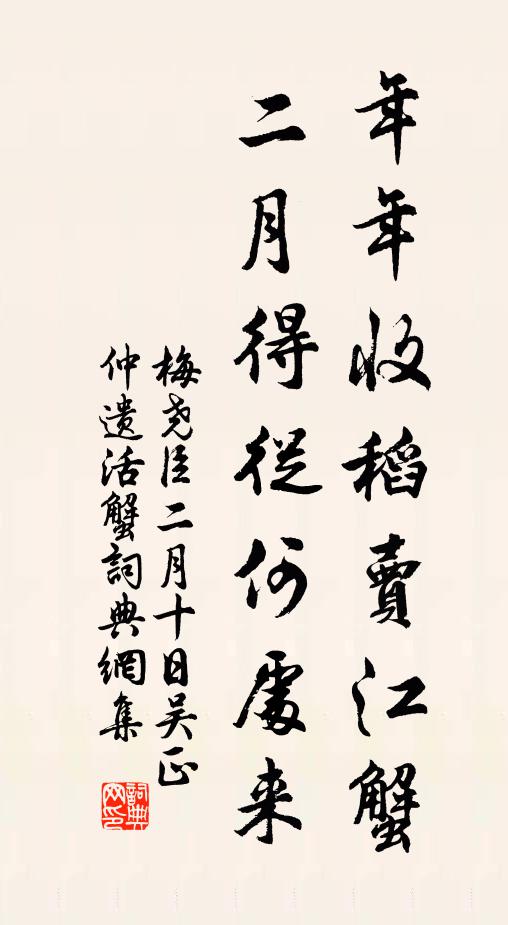 年年收稻賣江蟹
二月得從何處来
梅尧臣二月十日吴正
仲遺活蟹詞典網集
詞典网印